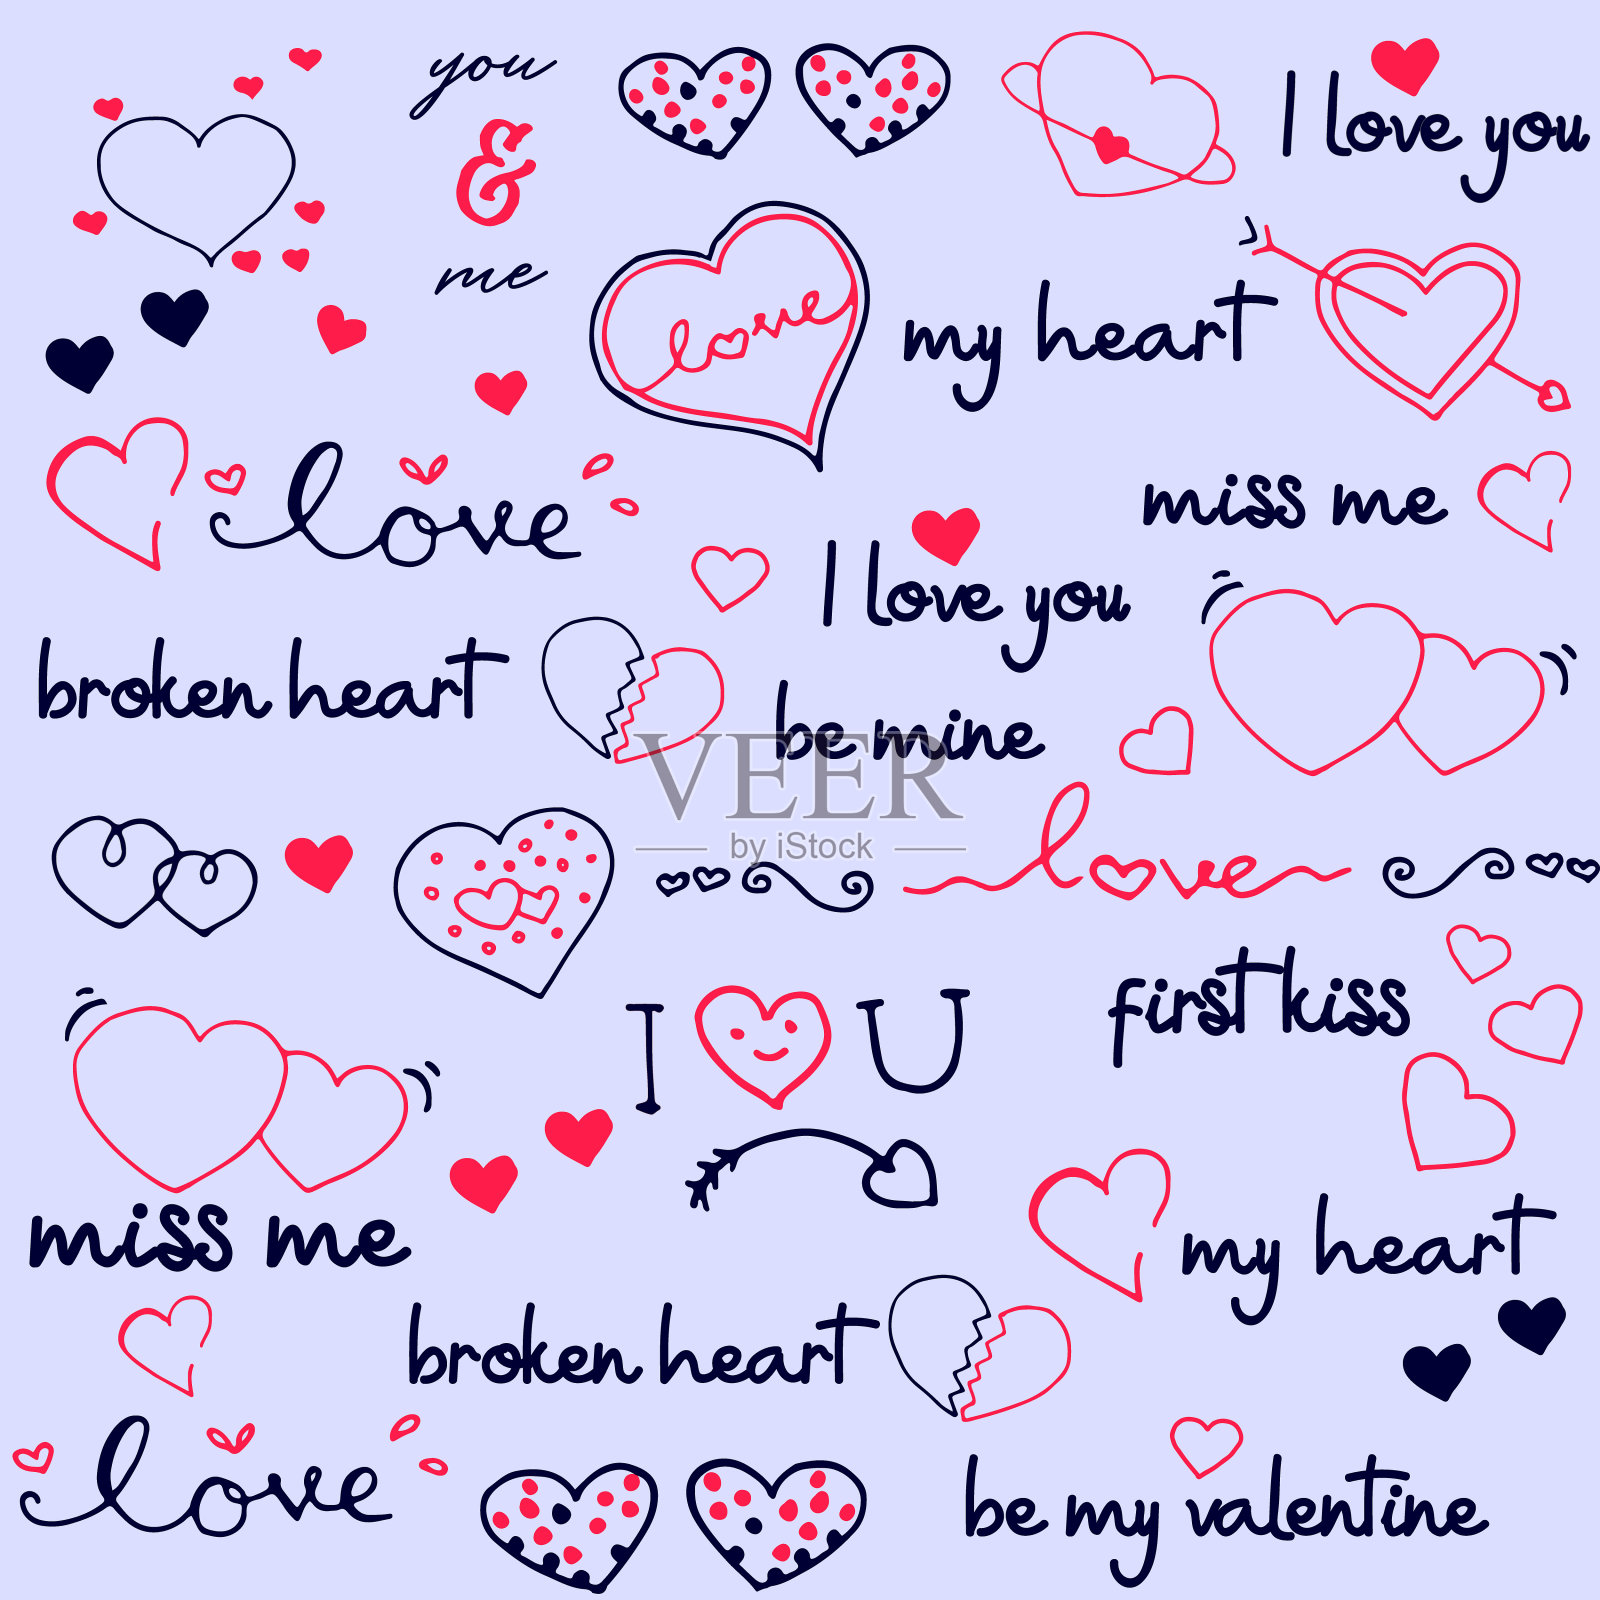 you
&
me
I love you
love
my heart
love
miss me
I love you
broken heart
be mine
VEER
by iStock
love
first kiss
I U
miss me
my heart
broken heart
love
be my valentine